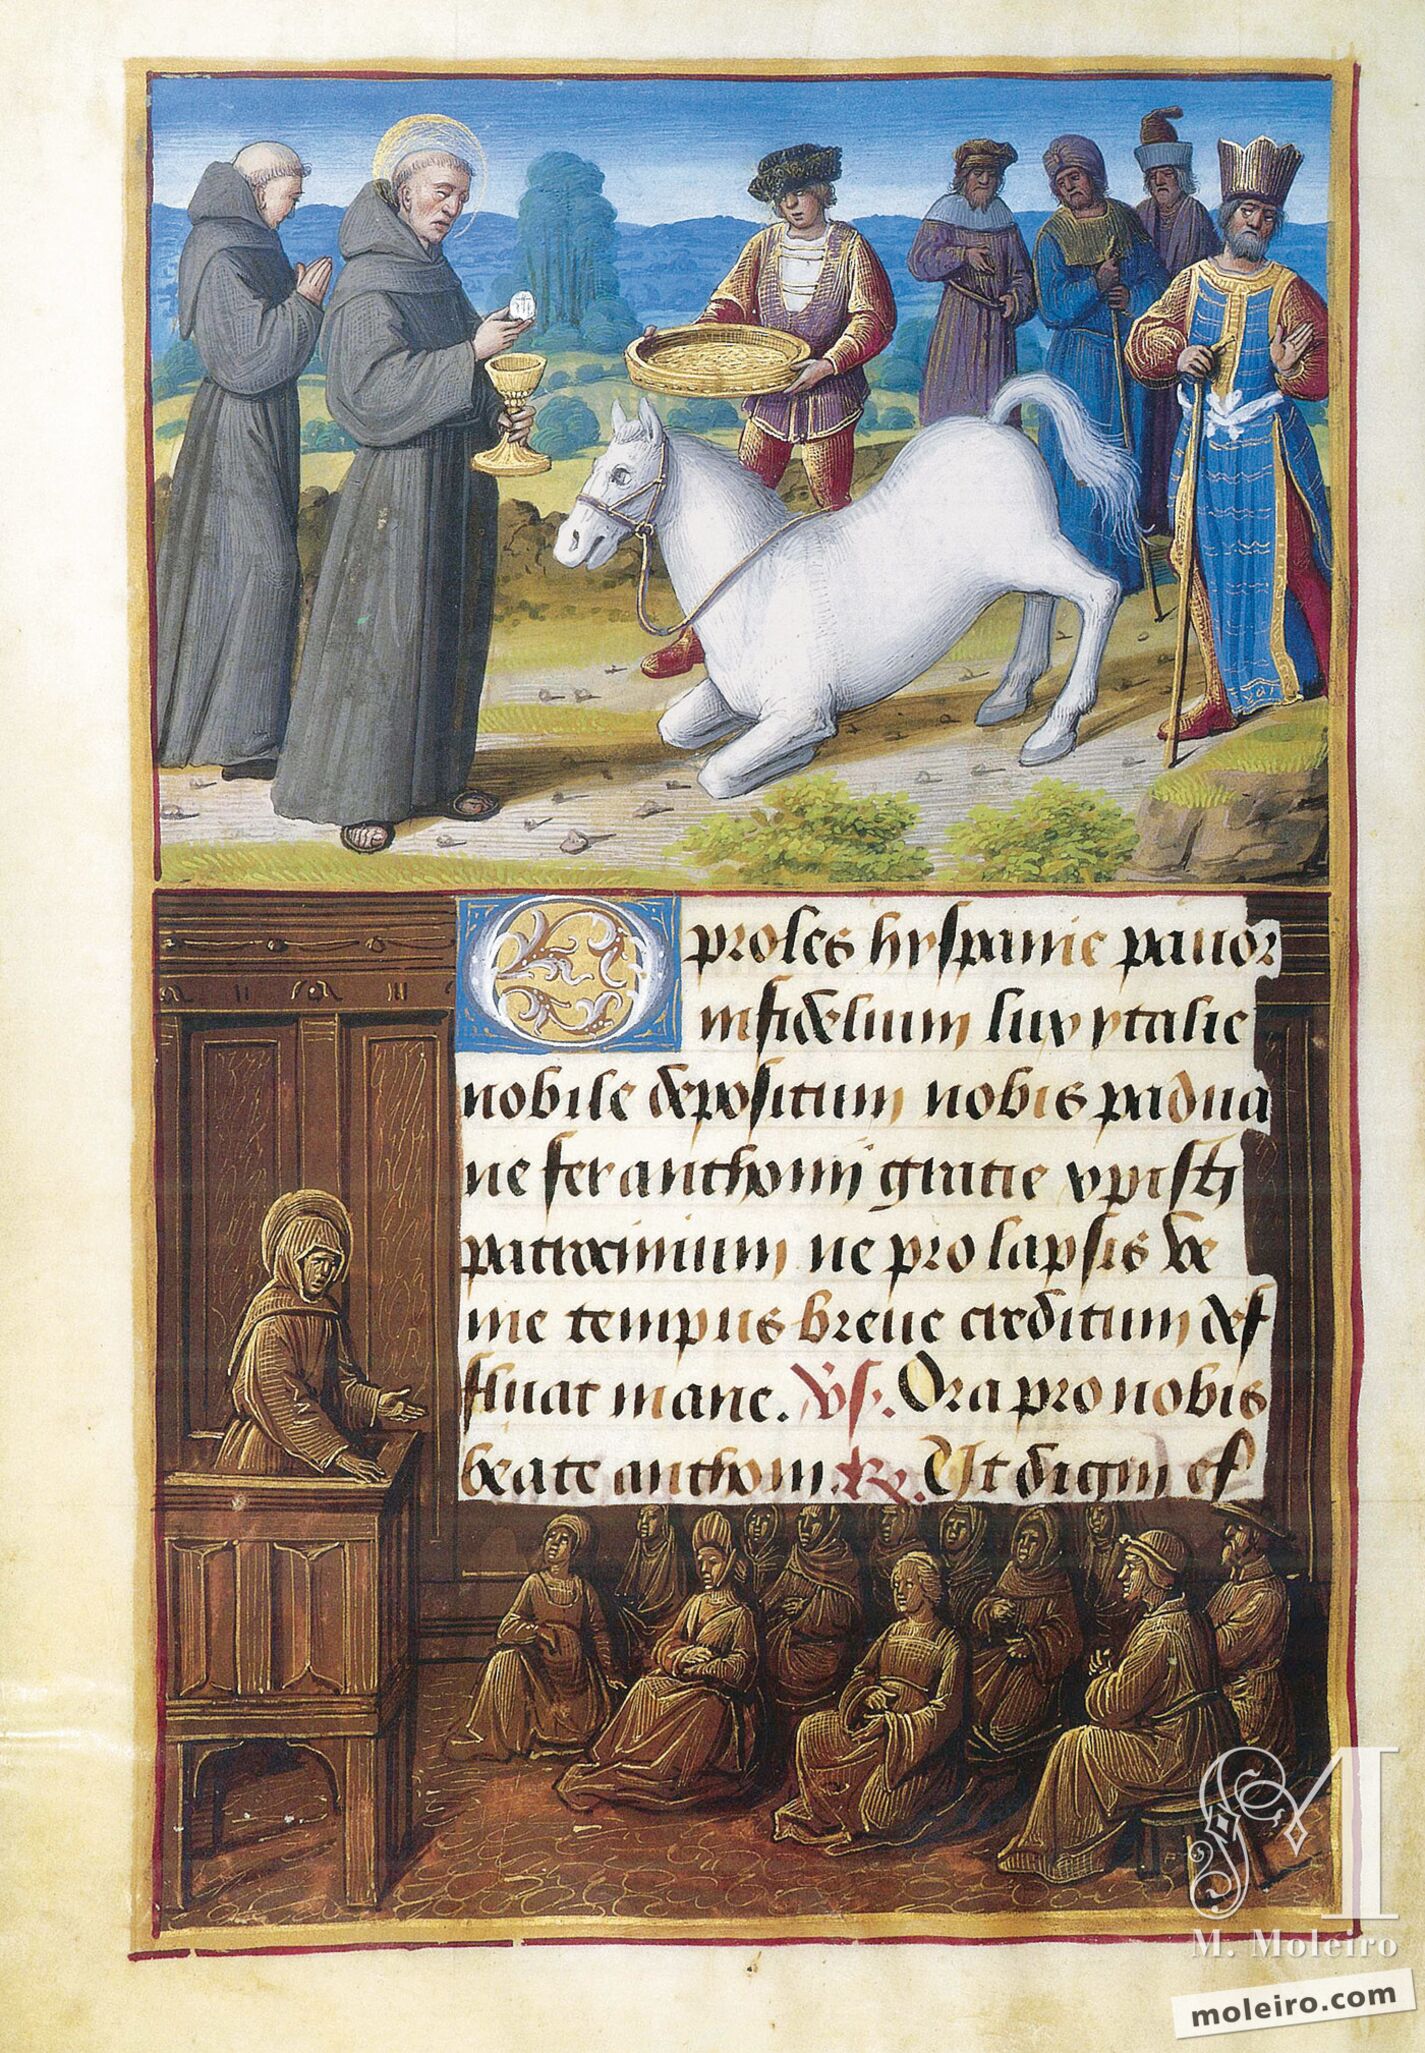 O proles hyspanie pavor
infidelium lux ytalie
nobile depositum nobis padua
ne fer anthonii gracie xpisti
patrocinium ne prolapsis ve
nie tempus breve creditum def
fluat inane. Vs. Ora pro nobis
beate anthoni. R. Ut digni ef
M. Moleiro
moleiro.com